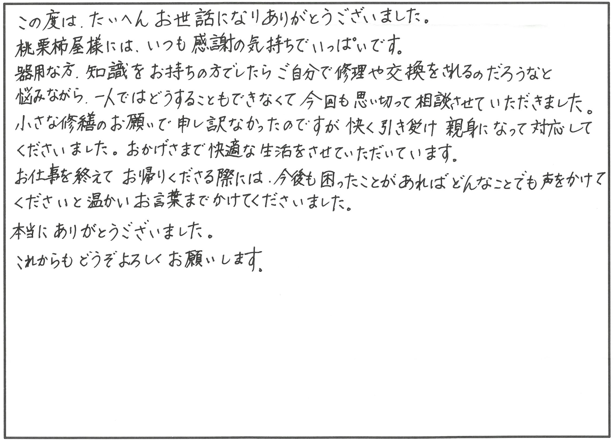 この度は、たいへんお世話になりありがとうございました。
桃栗柿屋様には、いつも感謝の気持ちでいっぱいです。
器用な方、知識をお持ちの方でしたらご自分で修理や交換をされるのだろうなと
悩みながら、一人ではどうすることもできなくて今回も思い切って相談させていただきました。
小さな修繕のお願いで申し訳なかったのですが快く引き受け親身になって対応して
くださいました。おかげさまで快適な生活をさせていただいています。
お仕事を終えてお帰りくださる際には、今後も困ったことがあればどんなことでも声をかけて
くださいと温かいお言葉までかけてくださいました。
本当にありがとうございました。
これからもどうぞよろしくお願いします。